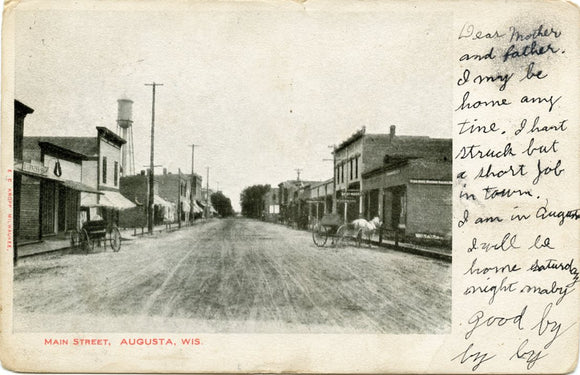 Dear Mother
and father.
I my be
home any
tine. I hant
struck but
a short job
in town.
I am in Augusta
I will be
home saturday
night maby
good by
by by
MAIN STREET, AUGUSTA, WIS.
E. C. KROPP MILWAUKEE